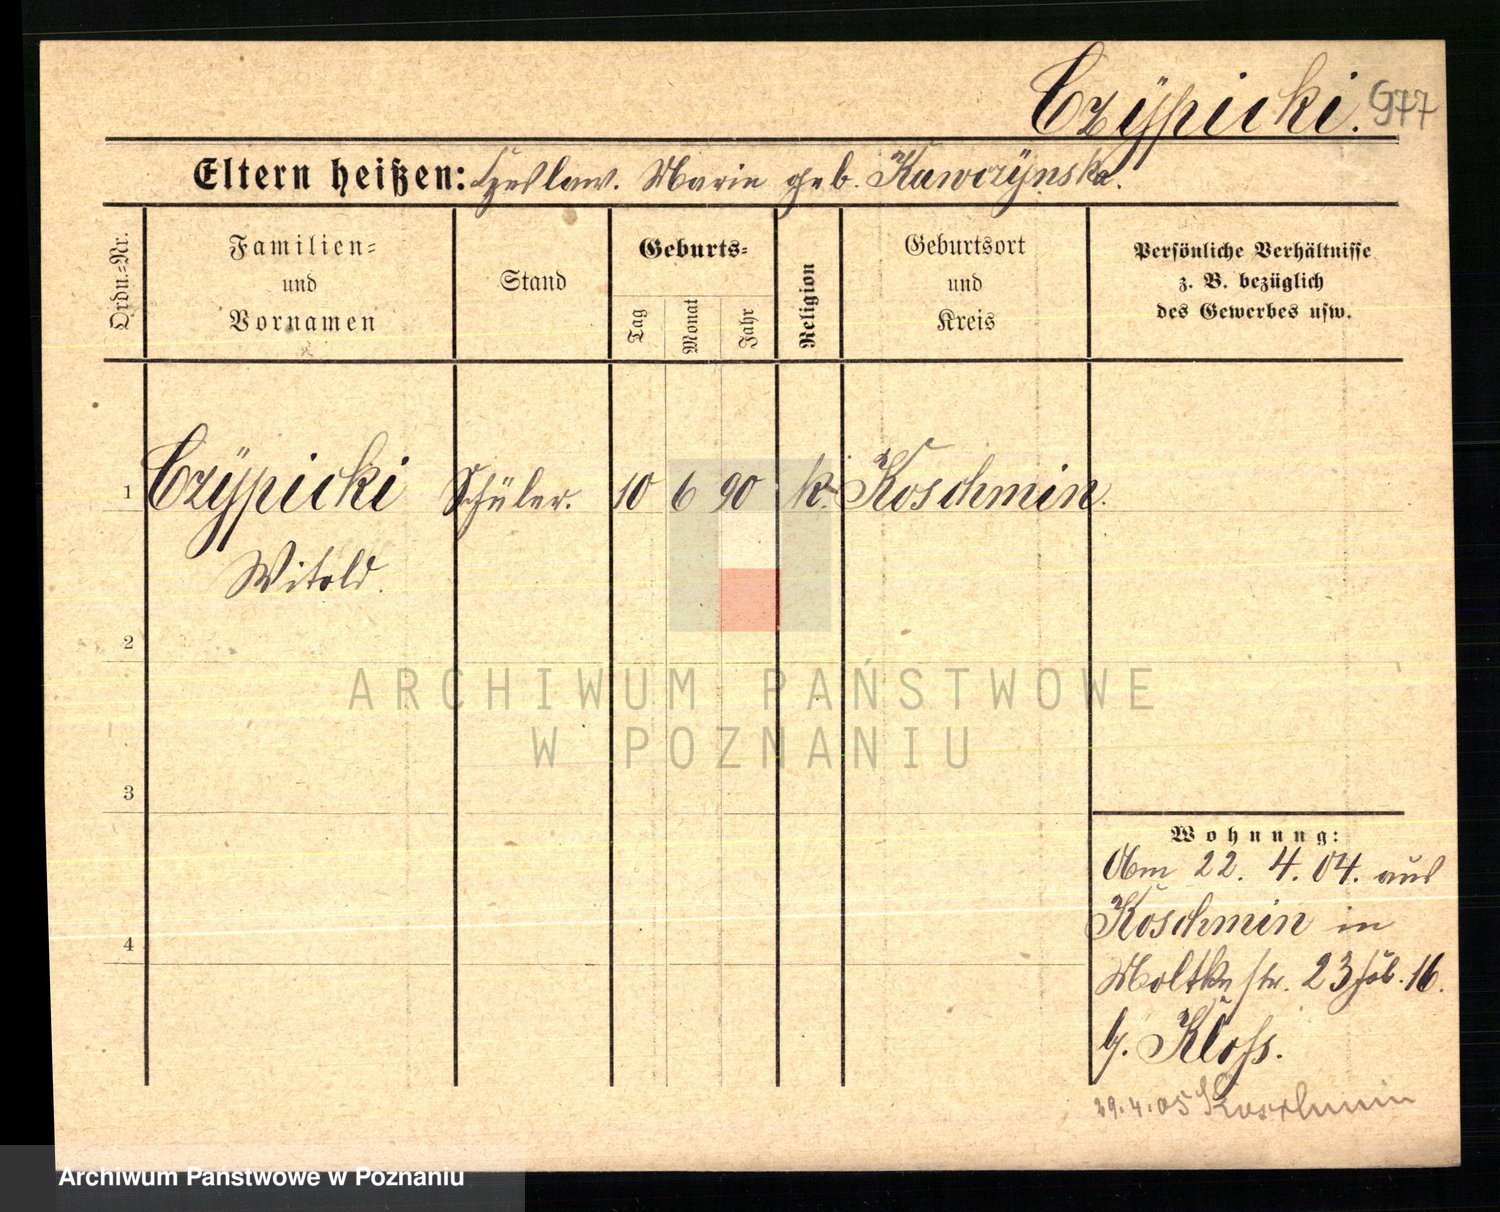 Czÿpicki. 977
Eltern heißen: Czeslaw. Marie geb. Kawczÿnska.
Ordn.-Nr.
Familien-
und
Vornamen
Stand
Geburts-
Tag
Monat
Jahr
Religion
Geburtsort
und
Kreis
Persönliche Verhältnisse
z. B. bezüglich
des Gewerbes usw.
1 Czÿpicki Schüler. 10 6 90 k. Koschmin.
Witold.
2
ARCHIWUM PAŃSTWOWE
W POZNANIU
3
Wohnung:
Am 22. 4. 04. aus
Koschmin in
4
Moltke str. 23 16.
b. Kloss.
29.4.05 Koschmin
Archiwum Państwowe w Poznaniu